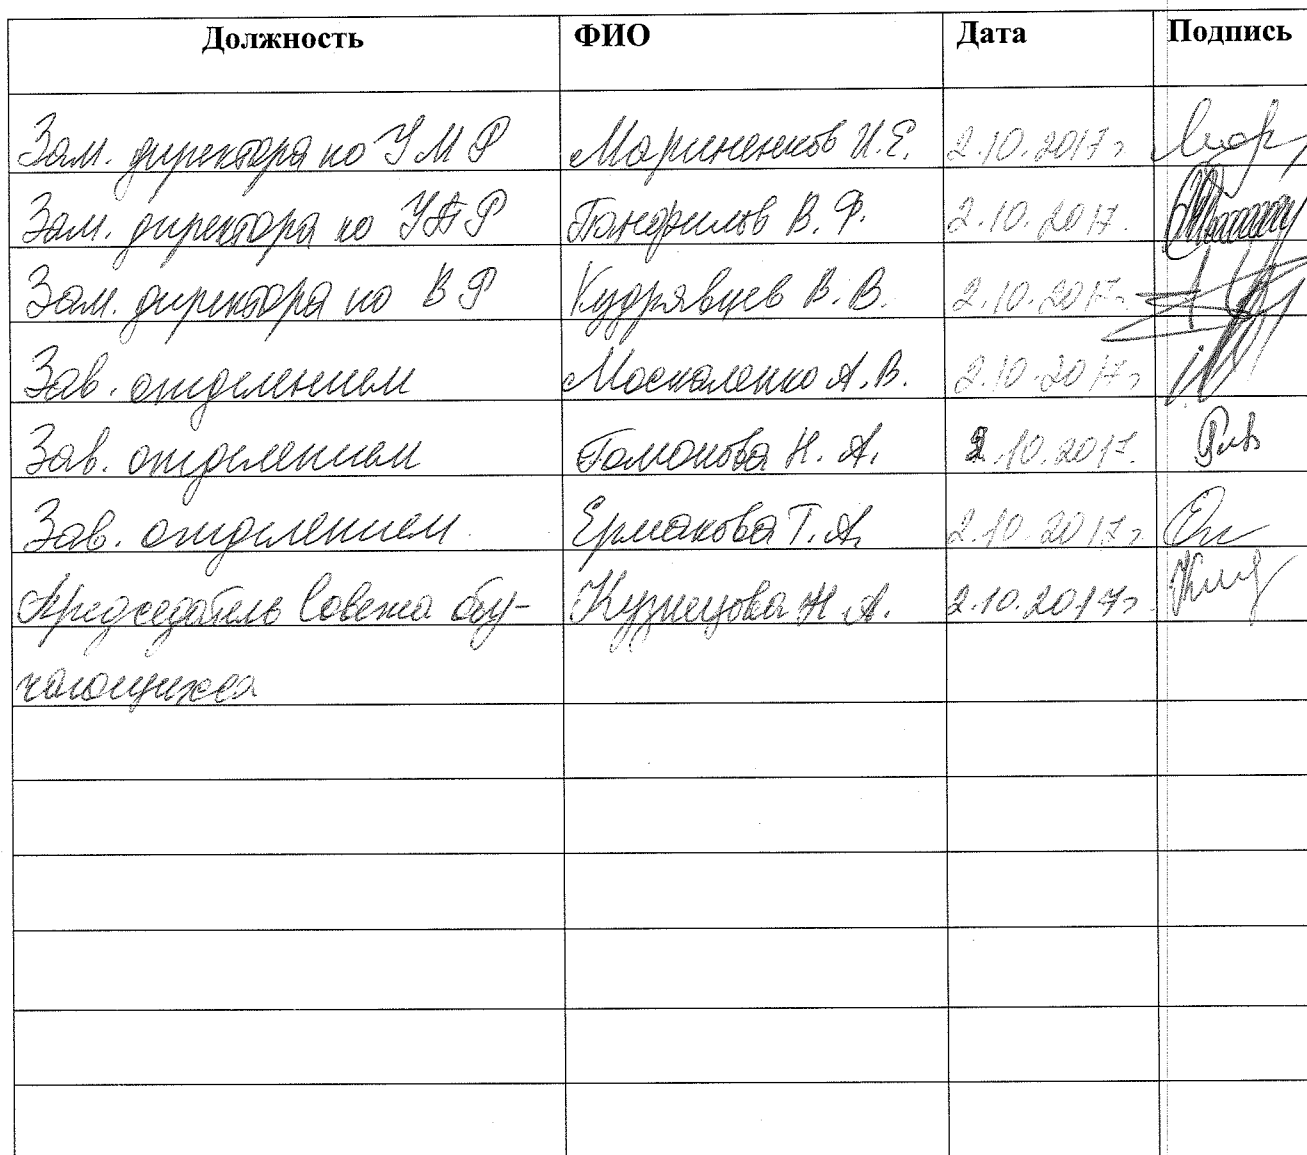 Должность ФИО Дата Подпись
Зам. директора по УМР Мариненков И.Е. 2.10.2017г
Зам. директора по УПР В. Ф. 2.10.2017.
Зам. директора по ВР Кудрявцев В.В. 2.10.2017г
Зав. отделением Москаленко А.В. 2.10.2017г
Зав. отделением Н. А. 2.10.2017.
Зав. отделением Ермакова Т.А. 2.10.2017г
Председатель Совета обу- Кузнецова Н.А. 2.10.2017г
чающихся